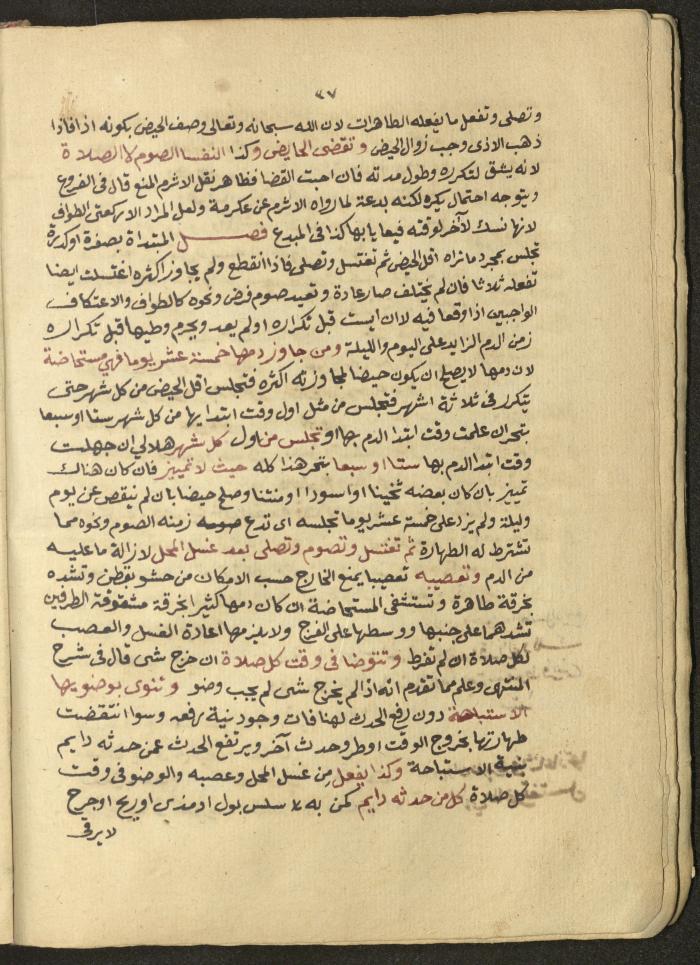 ٣٧
وتصلى وتفعل ما يفعله الطاهرات لان الله سبحانه وتعالى وصف الحيض بكونه اذا فاذا
ذهب الاذى وجب زوال الحيض وتقضى الحايض وكذا النفسا الصوم لا الصلاة
لانه يشق لتكرره وطول مدته فان احبت القضا فظاهر نقل الاثرم المنع قال فى الفروع
ويتوجه احتمال يكره لكنه بدعة لما رواه الاثرم عن عكرمة ولعل المراد الا ركعتى الطواف
لانها نسك لا آخر لوقته فيعايا بها كذا فى المبدع فصل المبتداة بصفرة او كدرة
تجلس بمجرد ما تراه اقل الحيض ثم تغتسل وتصلى فاذا انقطع ولم يجاوز اكثره اغتسلت ايضا
تفعله ثلاثا فان لم يختلف صار عادة وتعيد صوم فرض ونحوه كالطواف والاعتكاف
الواجبين اذا وقعا فيه لا ان ايست قبل تكراره او لم يعد ويحرم وطيها قبل تكراره
زمن الدم الزايد على اليوم والليلة ومن جاوز دمها خمسة عشر يوما فهي مستحاضة
لان دمها لا يصلح ان يكون حيضا لمجاوزته اكثره فتجلس اقل الحيض من كل شهر حتى
يتكرر فى ثلاثة اشهر فتجلس من مثل اول وقت ابتدايها من كل شهر ستا او سبعا
بتحر ان علمت وقت ابتدا الدم بها او تجلس من اول كل شهر هلالي ان جهلت
وقت ابتدا الدم بها ستا او سبعا بتحر هذا كله حيث لا تمييز فان كان هناك
تمييز بان كان بعضه ثخينا او اسودا او منتنا وصلح حيضا بان لم ينقص عن يوم
وليلة ولم يزد على خمسة عشر يوما تجلسه اى تدع زمنه الصوم ونحوه مما
تشترط له الطهارة ثم تغتسل وتصوم وتصلى بعد غسل المحل لازالة ما عليه
من الدم وتعصيبه تعصيبا يمنع الخارج حسب الامكان من حشو بقطن وتشده
بخرقة طاهرة وتستثفى المستحاضة ان كان دمها كثيرا بخرقة مشقوقة الطرفين
تشدهما على جنبها ووسطها على الفرج ولا يلزمها اعادة الغسل والعصب
لكل صلاة ان لم تفرط وتتوضا فى وقت كل صلاة ان خرج شى قال فى شرح
المنتهى وعلم مما تقدم انه اذا لم يخرج شى لم يجب وضو وتنوى بوضويها
الاستباحة دون رفع الحدث لمنافات وجود نية رفعه وسوا انتقضت
طهارتها بخروج الوقت او طرو حدث آخر ويرتفع الحدث عمن حدثه دايم
بنية الاستباحة وكذا يفعل من غسل المحل وعصبه والوضو فى وقت
كل صلاة كل من حدثه دايم كمن به سلس بول او مذى او ريح او جرح
لا يرقى